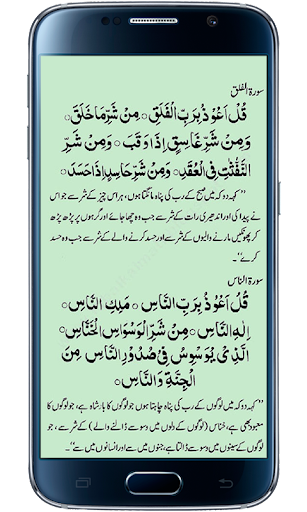 سورۃ الفلق
قُلْ اَعُوْذُ بِرَبِّ الْفَلَقِ ۙ مِنْ شَرِّ مَا خَلَقَ ۙ
وَمِنْ شَرِّ غَاسِقٍ اِذَا وَقَبَ ۙ وَمِنْ شَرِّ
النَّفّٰثٰتِ فِی الْعُقَدِ ۙ وَمِنْ شَرِّ حَاسِدٍ اِذَا حَسَدَ ۠
’’کہہ دو کہ میں صبح کے رب کی پناہ مانگتا ہوں، ہر اس چیز کے شر سے جو اس
نے پیدا کی اور اندھیری رات کے شر سے جب وہ چھا جائے اور گرہوں پر پڑھ پڑھ
کر پھونکیں مارنے والیوں کے شر سے اور حسد کرنے والے کے شر سے جب وہ حسد
کرے‘‘۔
سورۃ الناس
قُلْ اَعُوْذُ بِرَبِّ النَّاسِ ۙ مَلِكِ النَّاسِ ۙ
اِلٰهِ النَّاسِ ۙ مِنْ شَرِّ الْوَسْوَاسِ الْخَنَّاسِ ۙ
الَّذِیْ یُوَسْوِسُ فِیْ صُدُوْرِ النَّاسِ ۙ مِنَ
الْجِنَّةِ وَالنَّاسِ ۠
’’کہہ دو کہ میں لوگوں کے رب کی پناہ چاہتا ہوں جو لوگوں کا بادشاہ ہے، جو لوگوں کا
معبود بھی ہے، خناس (لوگوں کے دلوں میں وسوسے ڈالنے والے) کے شر سے، جو
لوگوں کے سینوں میں وسوسے ڈالتا ہے، جنوں میں سے اور انسانوں میں سے‘‘۔